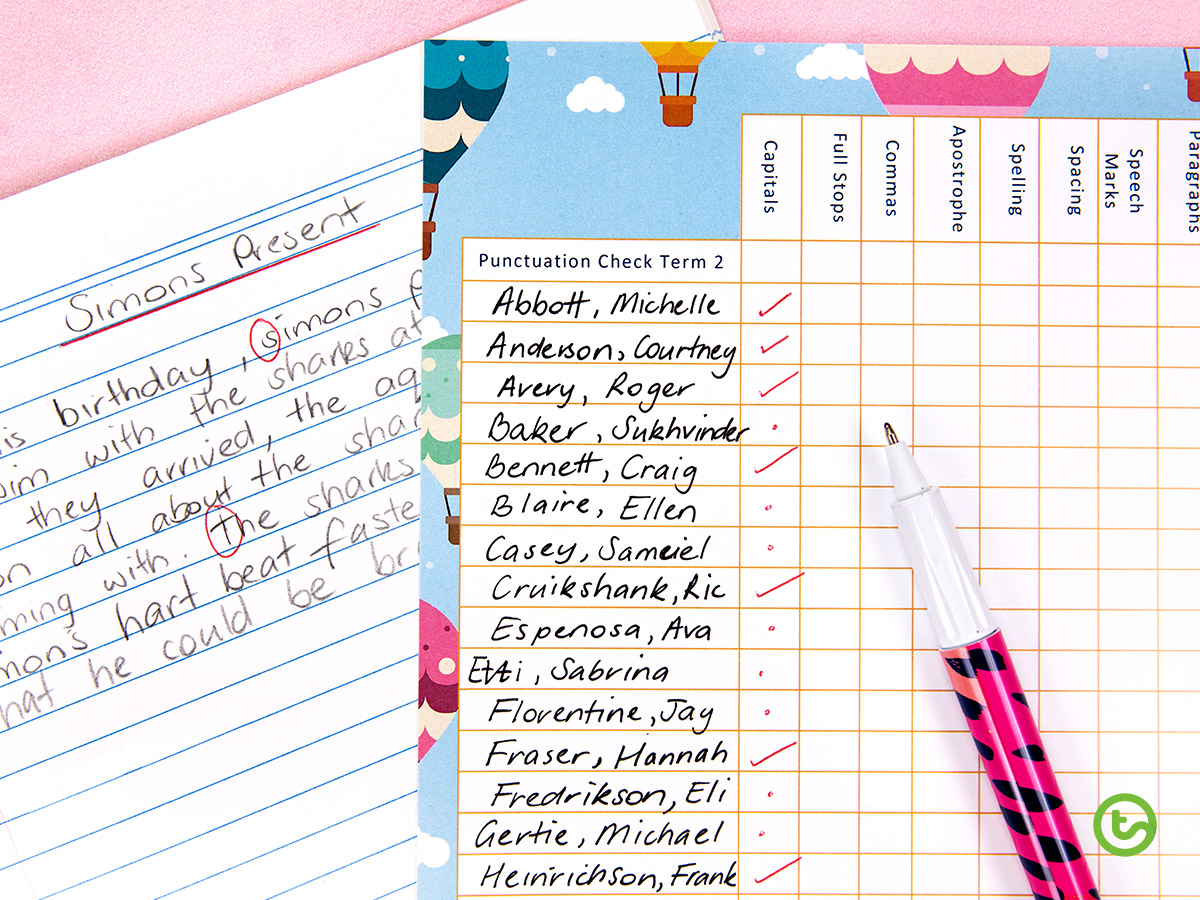 Simons Present
is birthday, simons
with the sharks at
they arrived, the
all about the
with. the sharks
hart beat
he could be
Capitals
Full Stops
Commas
Apostrophe
Spelling
Spacing
Speech
Marks
Paragraphs
Punctuation Check Term 2
Abbott, Michelle
Anderson, Courtney
Avery, Roger
Baker, Sukhvinder
Bennett, Craig
Blaire, Ellen
Casey, Samuiel
Cruikshank, Ric
Espenosa, Ava
Etti, Sabrina
Florentine, Jay
Fraser, Hannah
Fredrikson, Eli
Gertie, Michael
Heinrichson, Frank